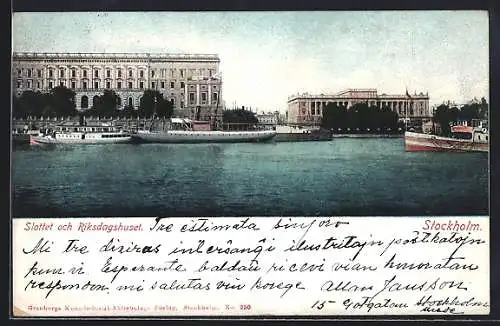 Slottet och Riksdagshuset. Tre estimata sinjoro Stockholm.
Mi tre deziras interŝanĝi ilustritajn poŝtkartojn
kun vi. Esperante baldaŭ ricevi vian honoratan
respondon mi salutas vin kore Allan Jansson
15 Götgatan Stockholm
Granbergs Konstindustri-Aktiebolags Förlag, Stockholm. No 250